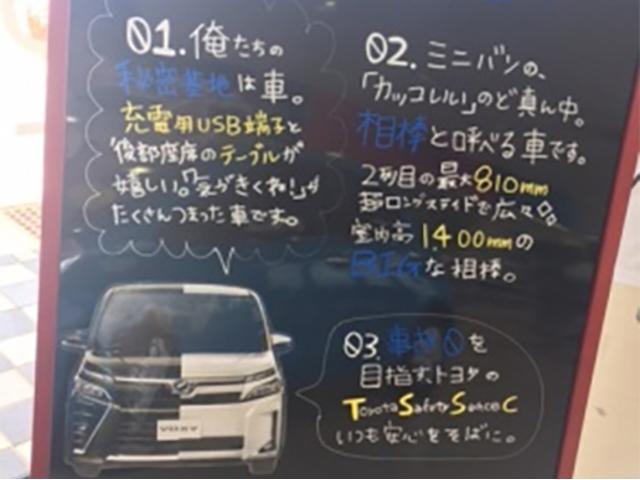 01. 俺たちの
秘密基地は車。
充電用USB端子と
後部座席のテーブルが
嬉しい。「気がきくね!」が
たくさんつまった車です。
02. ミニバンの、
「カッコいい」のど真ん中。
相棒と呼べる車です。
2列目の最大810mm
超ロングスライドで広々。
室内高1400mmの
BIGな相棒。
03. 事故0を
目指すトヨタの
Toyota Safety Sence C
いつも安心をそばに。
VOXY